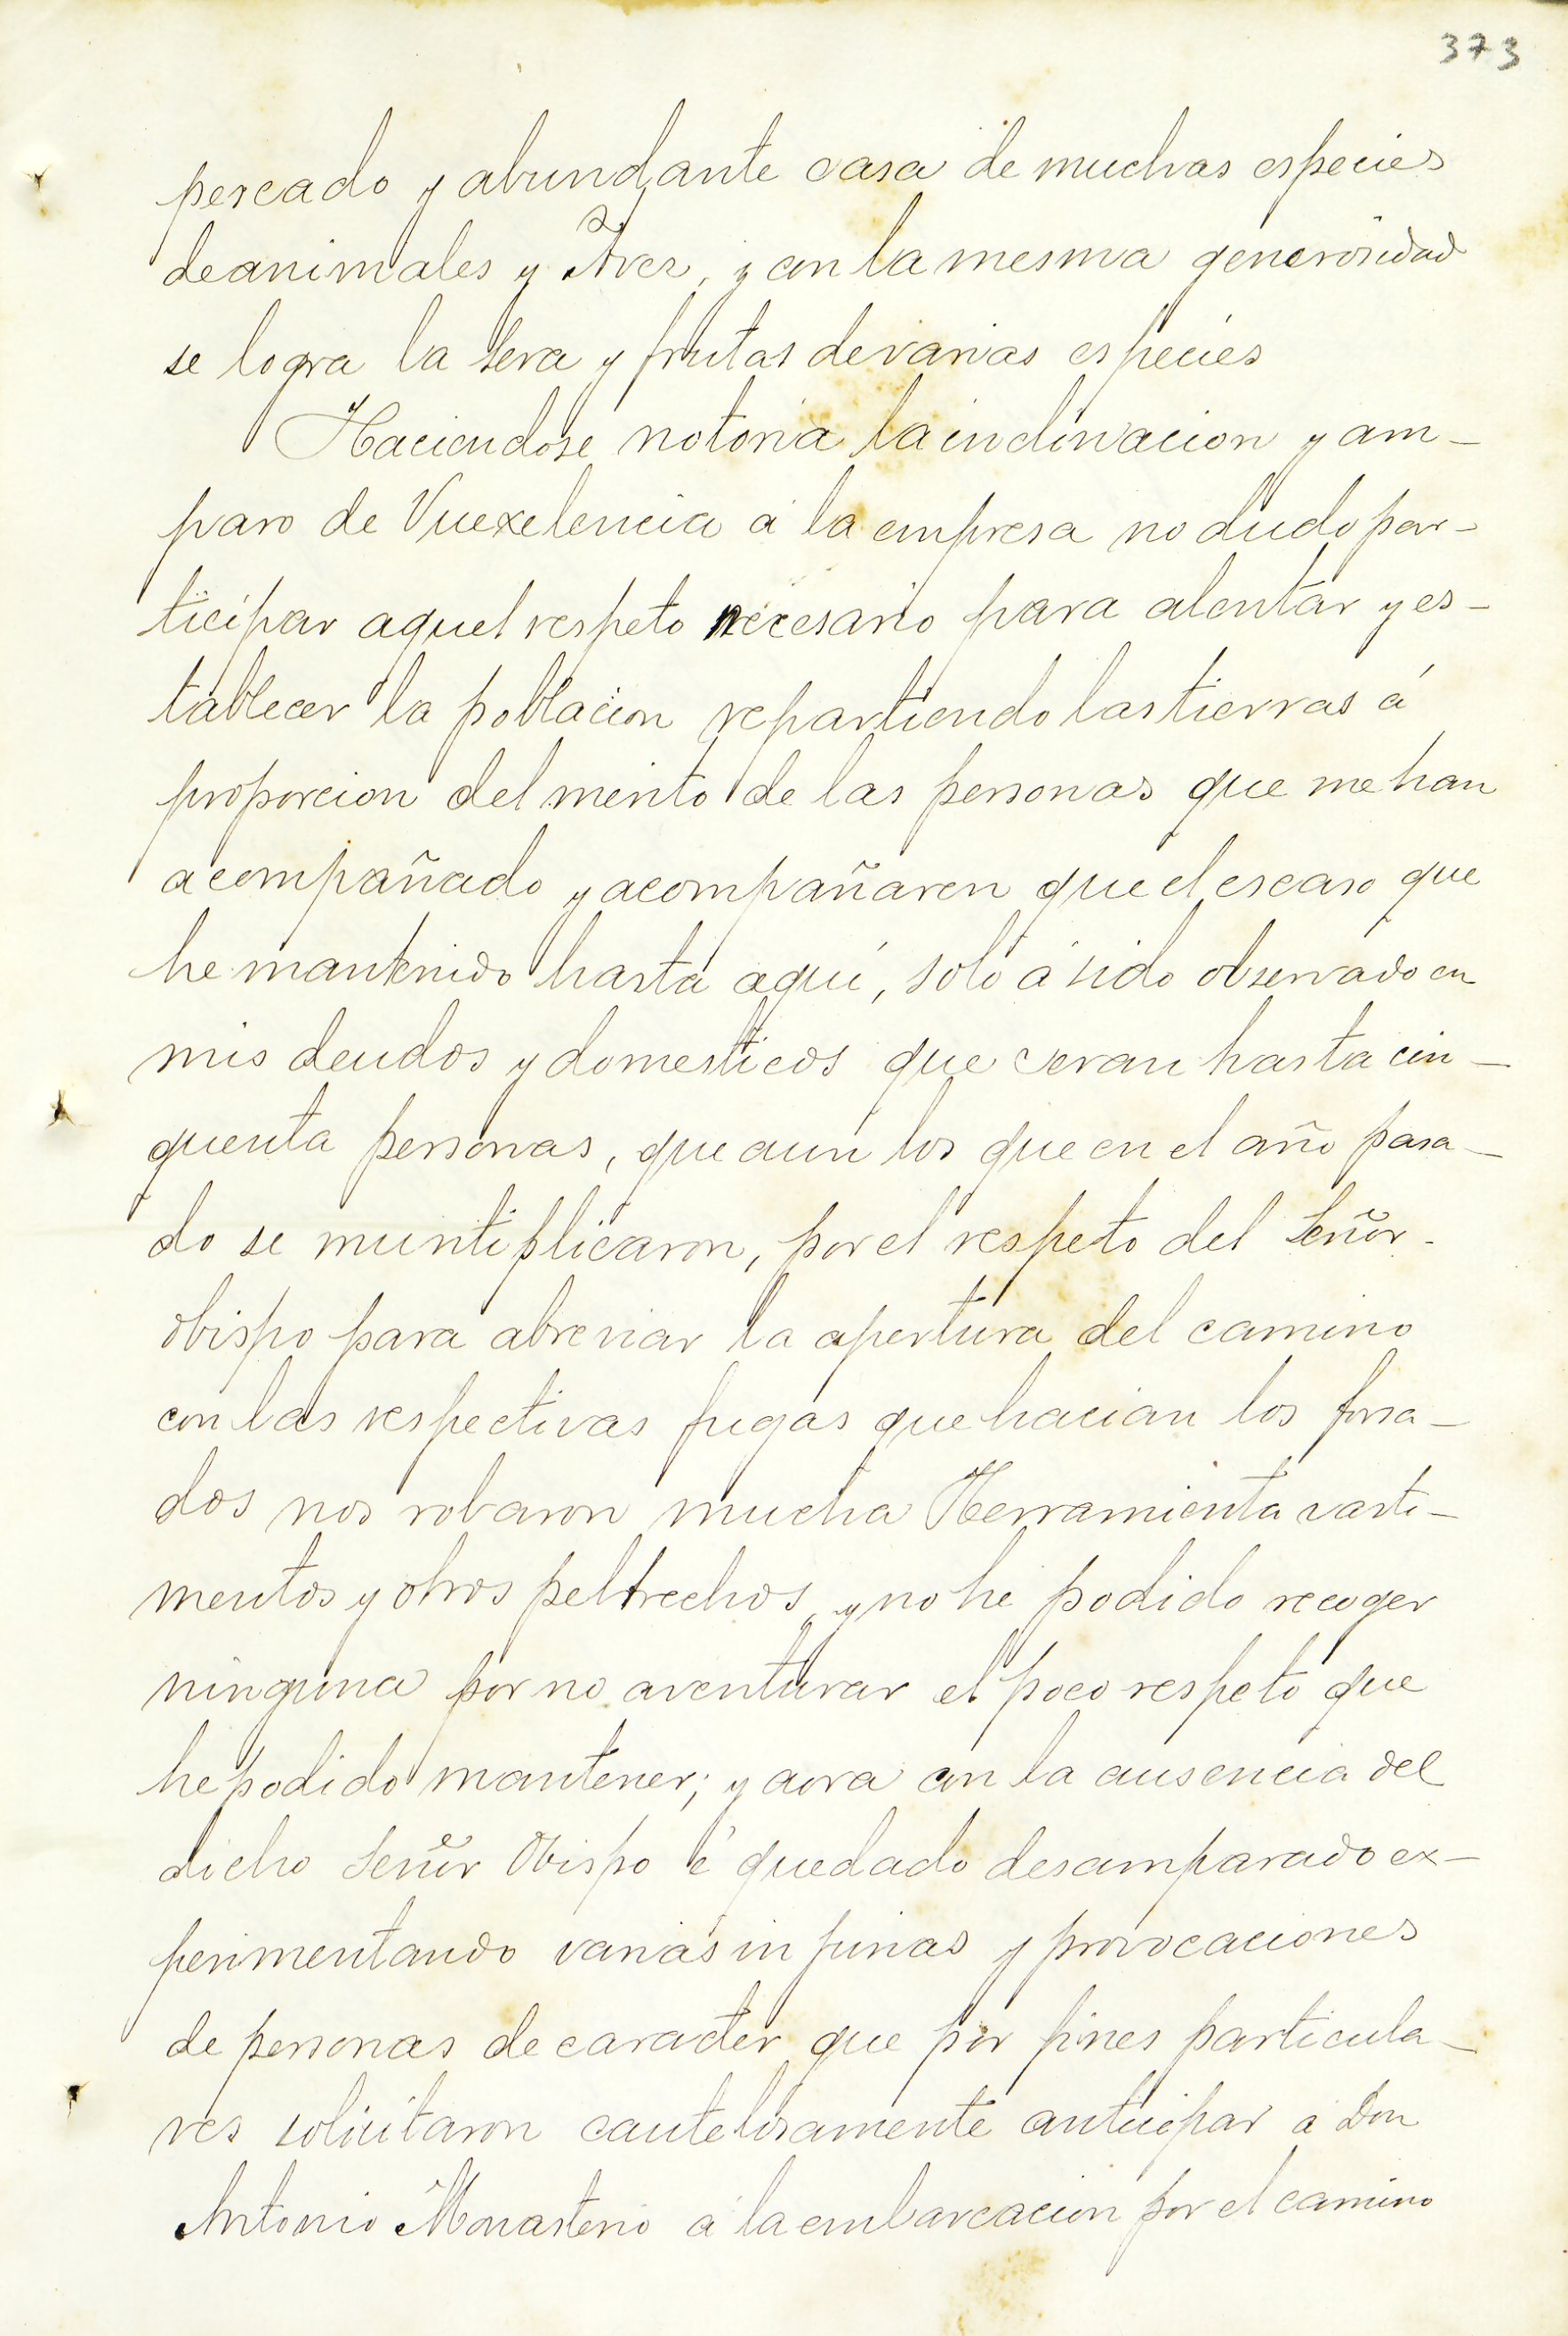 373
pescado y abundante casa de muchas especies
de animales y Aves, y con la mesma generosidad
se logra la sera y frutas de varias especies
Haciendose notoria la inclinacion y am-
paro de Vuexelencia á la empresa no dudo par-
ticipar aquel respeto necesario para alentar y es-
tablecer la poblacion repartiendo las tierras á
proporcion del merito de las personas que me han
acompañado y acompañaren que el escaso que
he mantenido hasta aquí, solo á sido observado en
mis deudos y domesticos que seran hasta cin-
quenta personas, que aun los que en el año pasa-
do se muntiplicaron, por el respeto del Señor
obispo para abreviar la apertura del camino
con las respectivas fugas que hacian los forsa-
dos nos robaron mucha Herramienta vasti-
mentos y otros peltrechos, y no he podido recoger
ninguna por no aventurar el poco respeto que
he podido mantener; y aora con la ausencia del
dicho Señor Obispo é quedado desamparado ex-
perimentando varias injurias y provocaciones
de personas de caracter que por fines particula-
res solicitaron cautelosamente anticipar á Don
Antonio Monasterio á la embarcacion por el camino